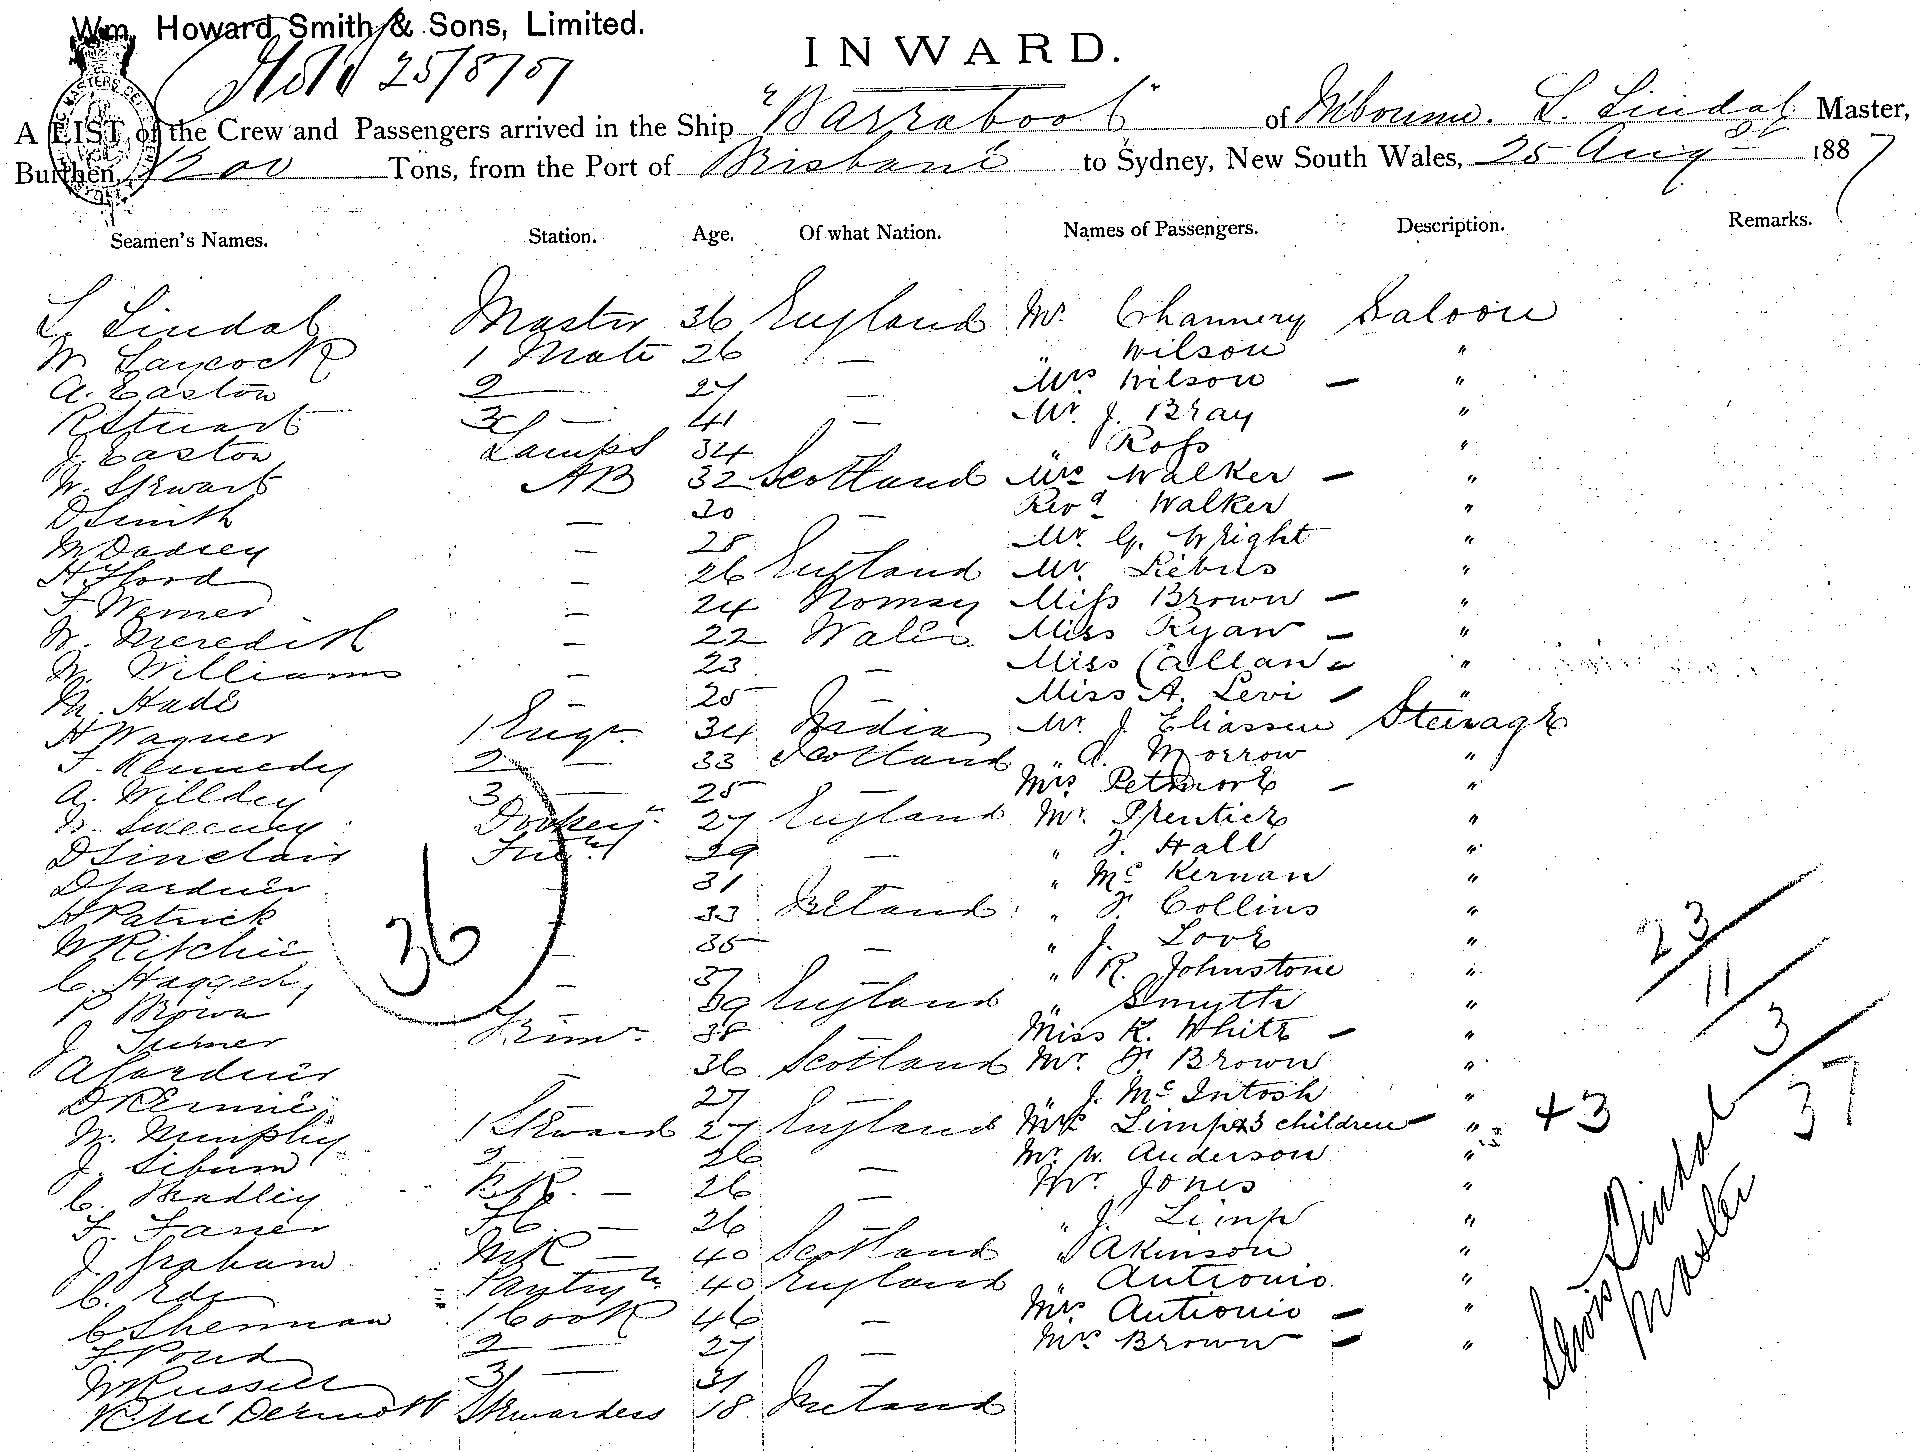 Wm. Howard Smith & Sons, Limited.
INWARD.
25/8/87
A LIST of the Crew and Passengers arrived in the Ship "Barrabool" of Melbourne. L. Lindal Master,
Burthen, 1200 Tons, from the Port of Brisbane to Sydney, New South Wales, 25 Augst 1887
Seamen's Names. Station. Age. Of what Nation. Names of Passengers. Description. Remarks.
L. Lindal Master 36 England Mr. Channery Saloon
W. Laycock 1 Mate 26 — " Wilson "
A. Easton 2 — 27 — Mrs Wilson — "
R Stuart 3 — 41 — Mr. J. Bray "
J. Easton Lamps 34 " Ross "
W. Stewart AB 32 Scotland Mrs Walker — "
D Smith — 30 — Revd Walker "
M Dadsey — 28 Mr. G. Wright "
H. Flood — 26 England Mr. Liebus "
F. Werner — 24 Norway Miss Brown — "
W. Meredith — 22 Wales Miss Ryan — "
W. Williams — 23 — Miss Callan — "
M. Hade — 25 — Miss A. Levi — "
H Wagner 1 Engr. 34 India Mr. J. Eliassen Steerage
F. Kennedy 2 — 33 Scotland " A. Morrow "
A. Willdey 3 — 25 — Mrs Petmore — "
W. Sweeney Donkey 27 England Mr. Prentice "
D Sinclair 29 — " F. Hall "
D Gardner 31 " Mc Kernan "
H Patrick 33 Ireland " F. Collins "
W Ritchie — 35 — " J. Love "
C. Haggerty — 37 " R. Johnstone "
P Brown 39 England " Smyth "
J. Turner Trimr. 38 Miss K. White — "
A Gardner — 36 Scotland Mr. F. Brown "
D Rennie 27 — " J. Mc Intosh "
W. Murphy 1 Steward 27 England Mrs Limp & 3 children — " +3
J. Sibum 2 — 26 — Mr. W. Anderson "
C. Bradley — 26 — Mr. Jones "
F. Farrer — 26 " J. Limp "
J. Graham — 40 Scotland " Akinson "
C. Ede Pantry 40 England " Antionio "
C Sherman 1 Cook 46 — Mrs Antionio — "
F. Pond 2 — 27 — Mrs Brown — "
W Russell 3 — 31
Mc Dermott Stewardess 18 Ireland
36
23
11
3
37
Lewis Lindal
Master